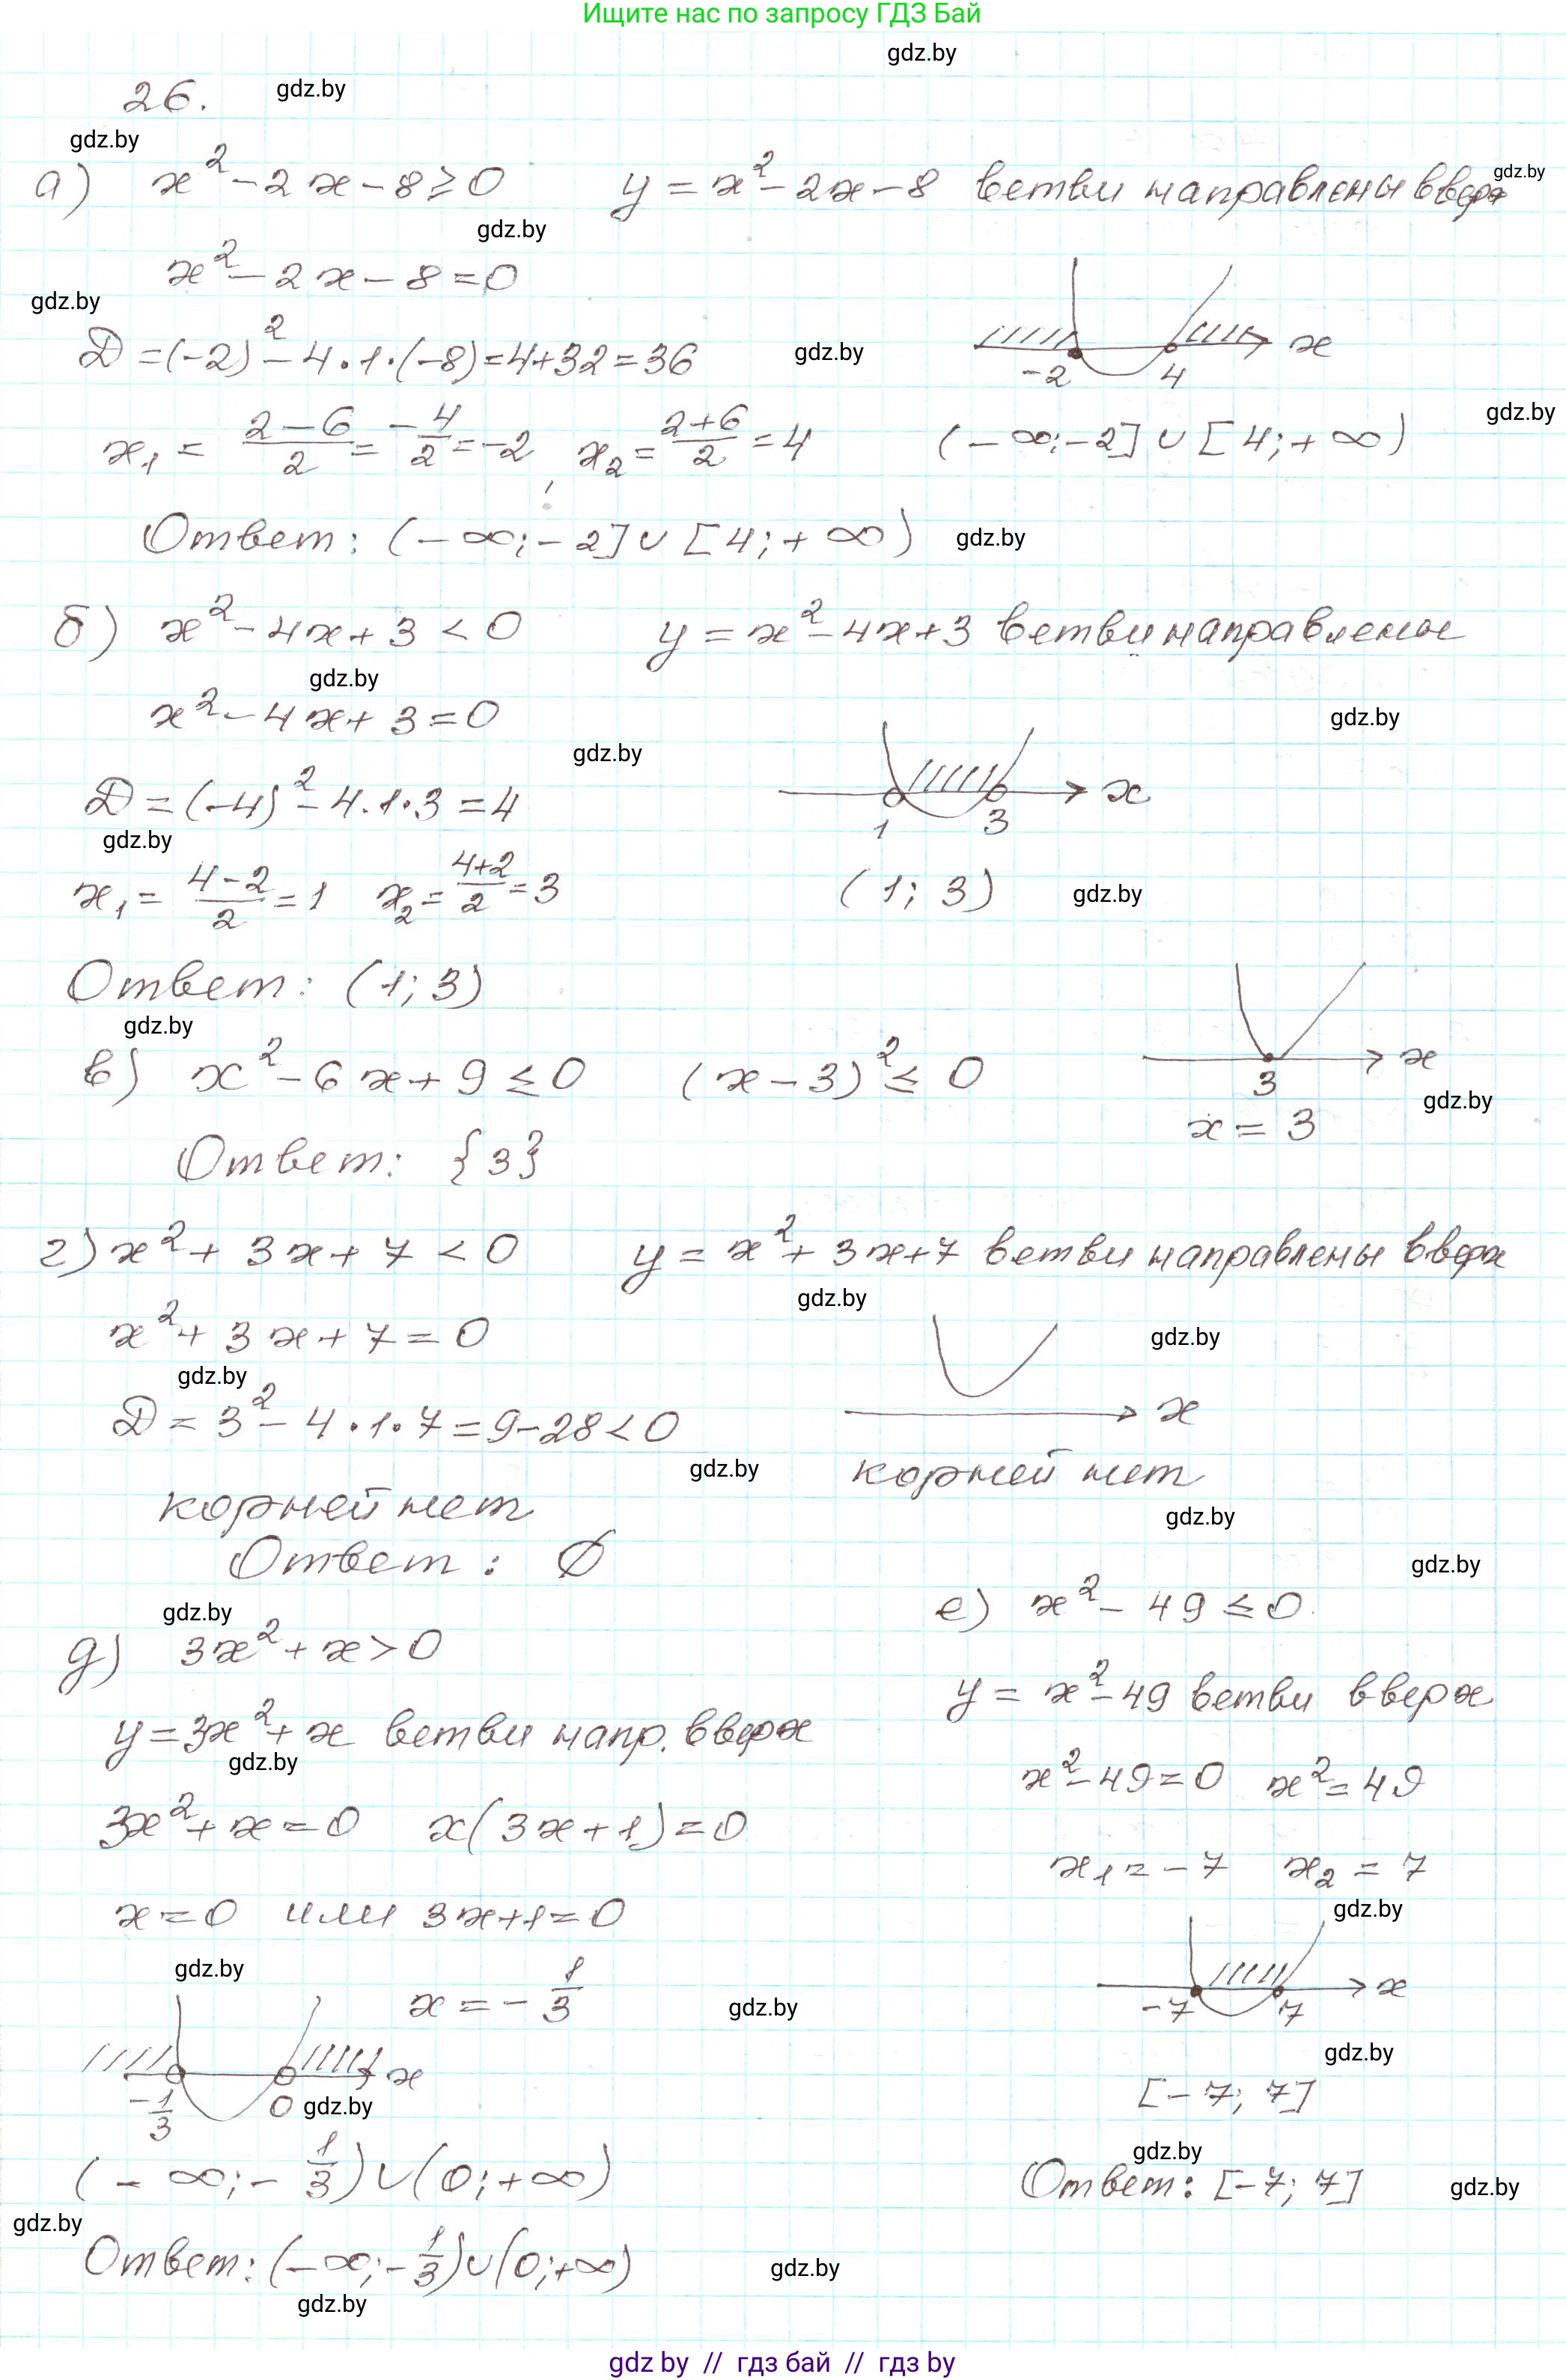 Ищите нас по запросу ГДЗ Бай
gdz.by
26. gdz.by
gdz.by
а) x² - 2x - 8 ≥ 0 y = x² - 2x - 8 ветви направлены вверх gdz.by
gdz.by
x² - 2x - 8 = 0
gdz.by
Д = (-2)² - 4·1·(-8) = 4+32 = 36 gdz.by
x
-2 4
gdz.by
x₁ = (2-6)/2 = -4/2 = -2 x₂ = (2+6)/2 = 4 (-∞; -2] ∪ [4; +∞)
Ответ: (-∞; -2] ∪ [4; +∞) gdz.by
б) x² - 4x + 3 < 0 y = x² - 4x + 3 ветви направлены
gdz.by
x² - 4x + 3 = 0 gdz.by
gdz.by
Д = (-4)² - 4·1·3 = 4 x
1 3
gdz.by
x₁ = (4-2)/2 = 1 x₂ = (4+2)/2 = 3 (1; 3) gdz.by
Ответ: (1; 3)
gdz.by
в) x² - 6x + 9 ≤ 0 (x - 3)² ≤ 0 x
3
gdz.by
x = 3
Ответ: {3}
г) x² + 3x + 7 < 0 y = x² + 3x + 7 ветви направлены вверх
gdz.by
x² + 3x + 7 = 0 gdz.by
gdz.by
Д = 3² - 4·1·7 = 9 - 28 < 0 x
gdz.by корней нет
корней нет gdz.by
Ответ: ∅ gdz.by
gdz.by
д) 3x² + x > 0
y = 3x² + x ветви напр. вверх
gdz.by
3x² + x = 0 x(3x + 1) = 0
x = 0 или 3x + 1 = 0
gdz.by
x = -1/3 gdz.by
x
-1/3 0 gdz.by
(-∞; -1/3) ∪ (0; +∞)
gdz.by
Ответ: (-∞; -1/3) ∪ (0; +∞) gdz.by
gdz.by
е) x² - 49 ≤ 0
y = x² - 49 ветви вверх
x² - 49 = 0 x² = 49
x₁ = -7 x₂ = 7
gdz.by
x
-7 7
gdz.by
[-7; 7]
gdz.by
Ответ: [-7; 7] gdz.by
gdz by // гдз бай // гдз by